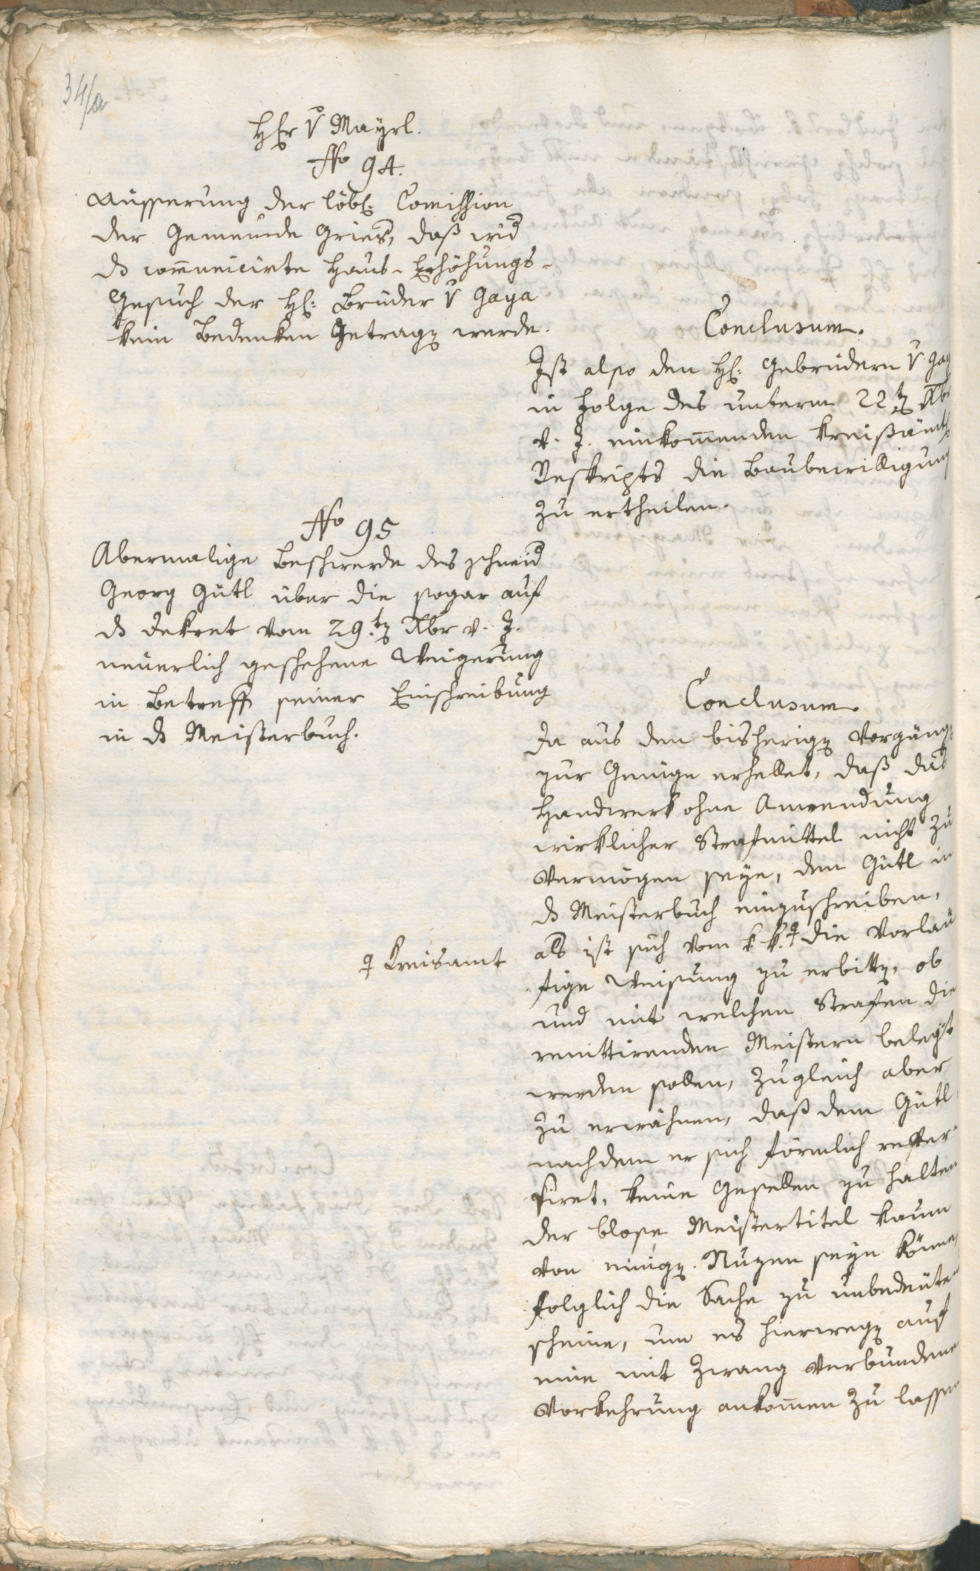 34/a
Hr v Mayrl.
No 94.
Äusserung der löbl: Comission
der Gemeinde Gries, daß wid
ds communicirte Haus-Erhöhungs-
Gesuch der H: Brüder v Gaya
kein Bedenken getragen werde.
Conclusum.
Ist also den H: Gebrüdern v Gay
in Folge des unterm 22ten Xbr
v. J. einkommenden kreisämtl:
Reskripts die Baubewilligung
zu ertheilen.
No 95
Abermalige Beschwerde des Schneid
Georg Gütl über die sogar auf
ds Dekret vom 29ten Xbr v. J.
neuerlich geschehene Weigerung
in Betreff seiner Einschreibung
in ds Meisterbuch.
Conclusum.
Da aus den bisherigen Vorgäng
zur Genüge erhellet, daß das
Handwerk ohne Anwendung
wirklicher Strafmittel nicht zu
vermögen seye, den Gütl in
ds Meisterbuch einzuschreiben,
als ist sich vom k. k. die vorläu
Kreisamt
fige Weisung zu erbitten, ob
und mit welchen Strafen die
renittirenden Meistern belegt
werden sollen, zugleich aber
zu erwähnen, daß dem Gütl
nachdem er sich förmlich rever
siret, keine Gesellen zu halten
der blose Meistertitel kaum
von einigen Nuzen seyn könne,
folglich die Sache zu unbedeuten
scheine, um es hierwegen auf
eine mit Zwang verbundene
Vorkehrung ankommen zu lassen